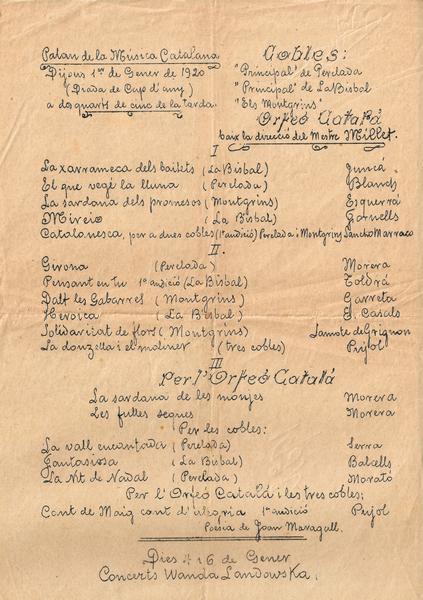 Palau de la Música Catalana
Dijous 1er de Gener de 1920
(Diada de Cap d'any)
a dos quarts de cinc de la tarda.
Cobles:
"Principal" de Perelada
"Principal" de La Bisbal
"Els Montgrins"
Orfeó Català
baix la direcció del Mestre Millet.
I
La xarrameca dels bailets (La Bisbal) Juncá.
El que vegé la lluna (Perelada) Blanch
La sardana dels promesos (Montgrins) Esquerra
Mireio (La Bisbal) Garnells
Catalanesca, per a dues cobles (1ª audició) Perelada i Montgrins Sancho Marraco
II.
Girona (Perelada) Morera
Pensant en tu 1ª audició (La Bisbal) Toldrá
Dalt les Gabarres (Montgrins) Garreta
Heroica (La Bisbal) E. Casals
Solidaritat de flors (Montgrins) Lamote de Grignon
La donzella i el moliner (tres cobles) Pujol
III
Per l'Orfeó Català
La sardana de les monjes Morera
Les fulles seques Morera
Per les cobles:
La vall encantada (Perelada) Serra
Fantasiosa (La Bisbal) Balcells
La Nit de Nadal (Perelada) Morató
Per l'Orfeó Català i les tres cobles:
Cant de Maig cant d'alegria 1ª audició Pujol
Poesia de Joan Maragall.
Dies 4 i 6 de Gener
Concerts Wanda Landowska.